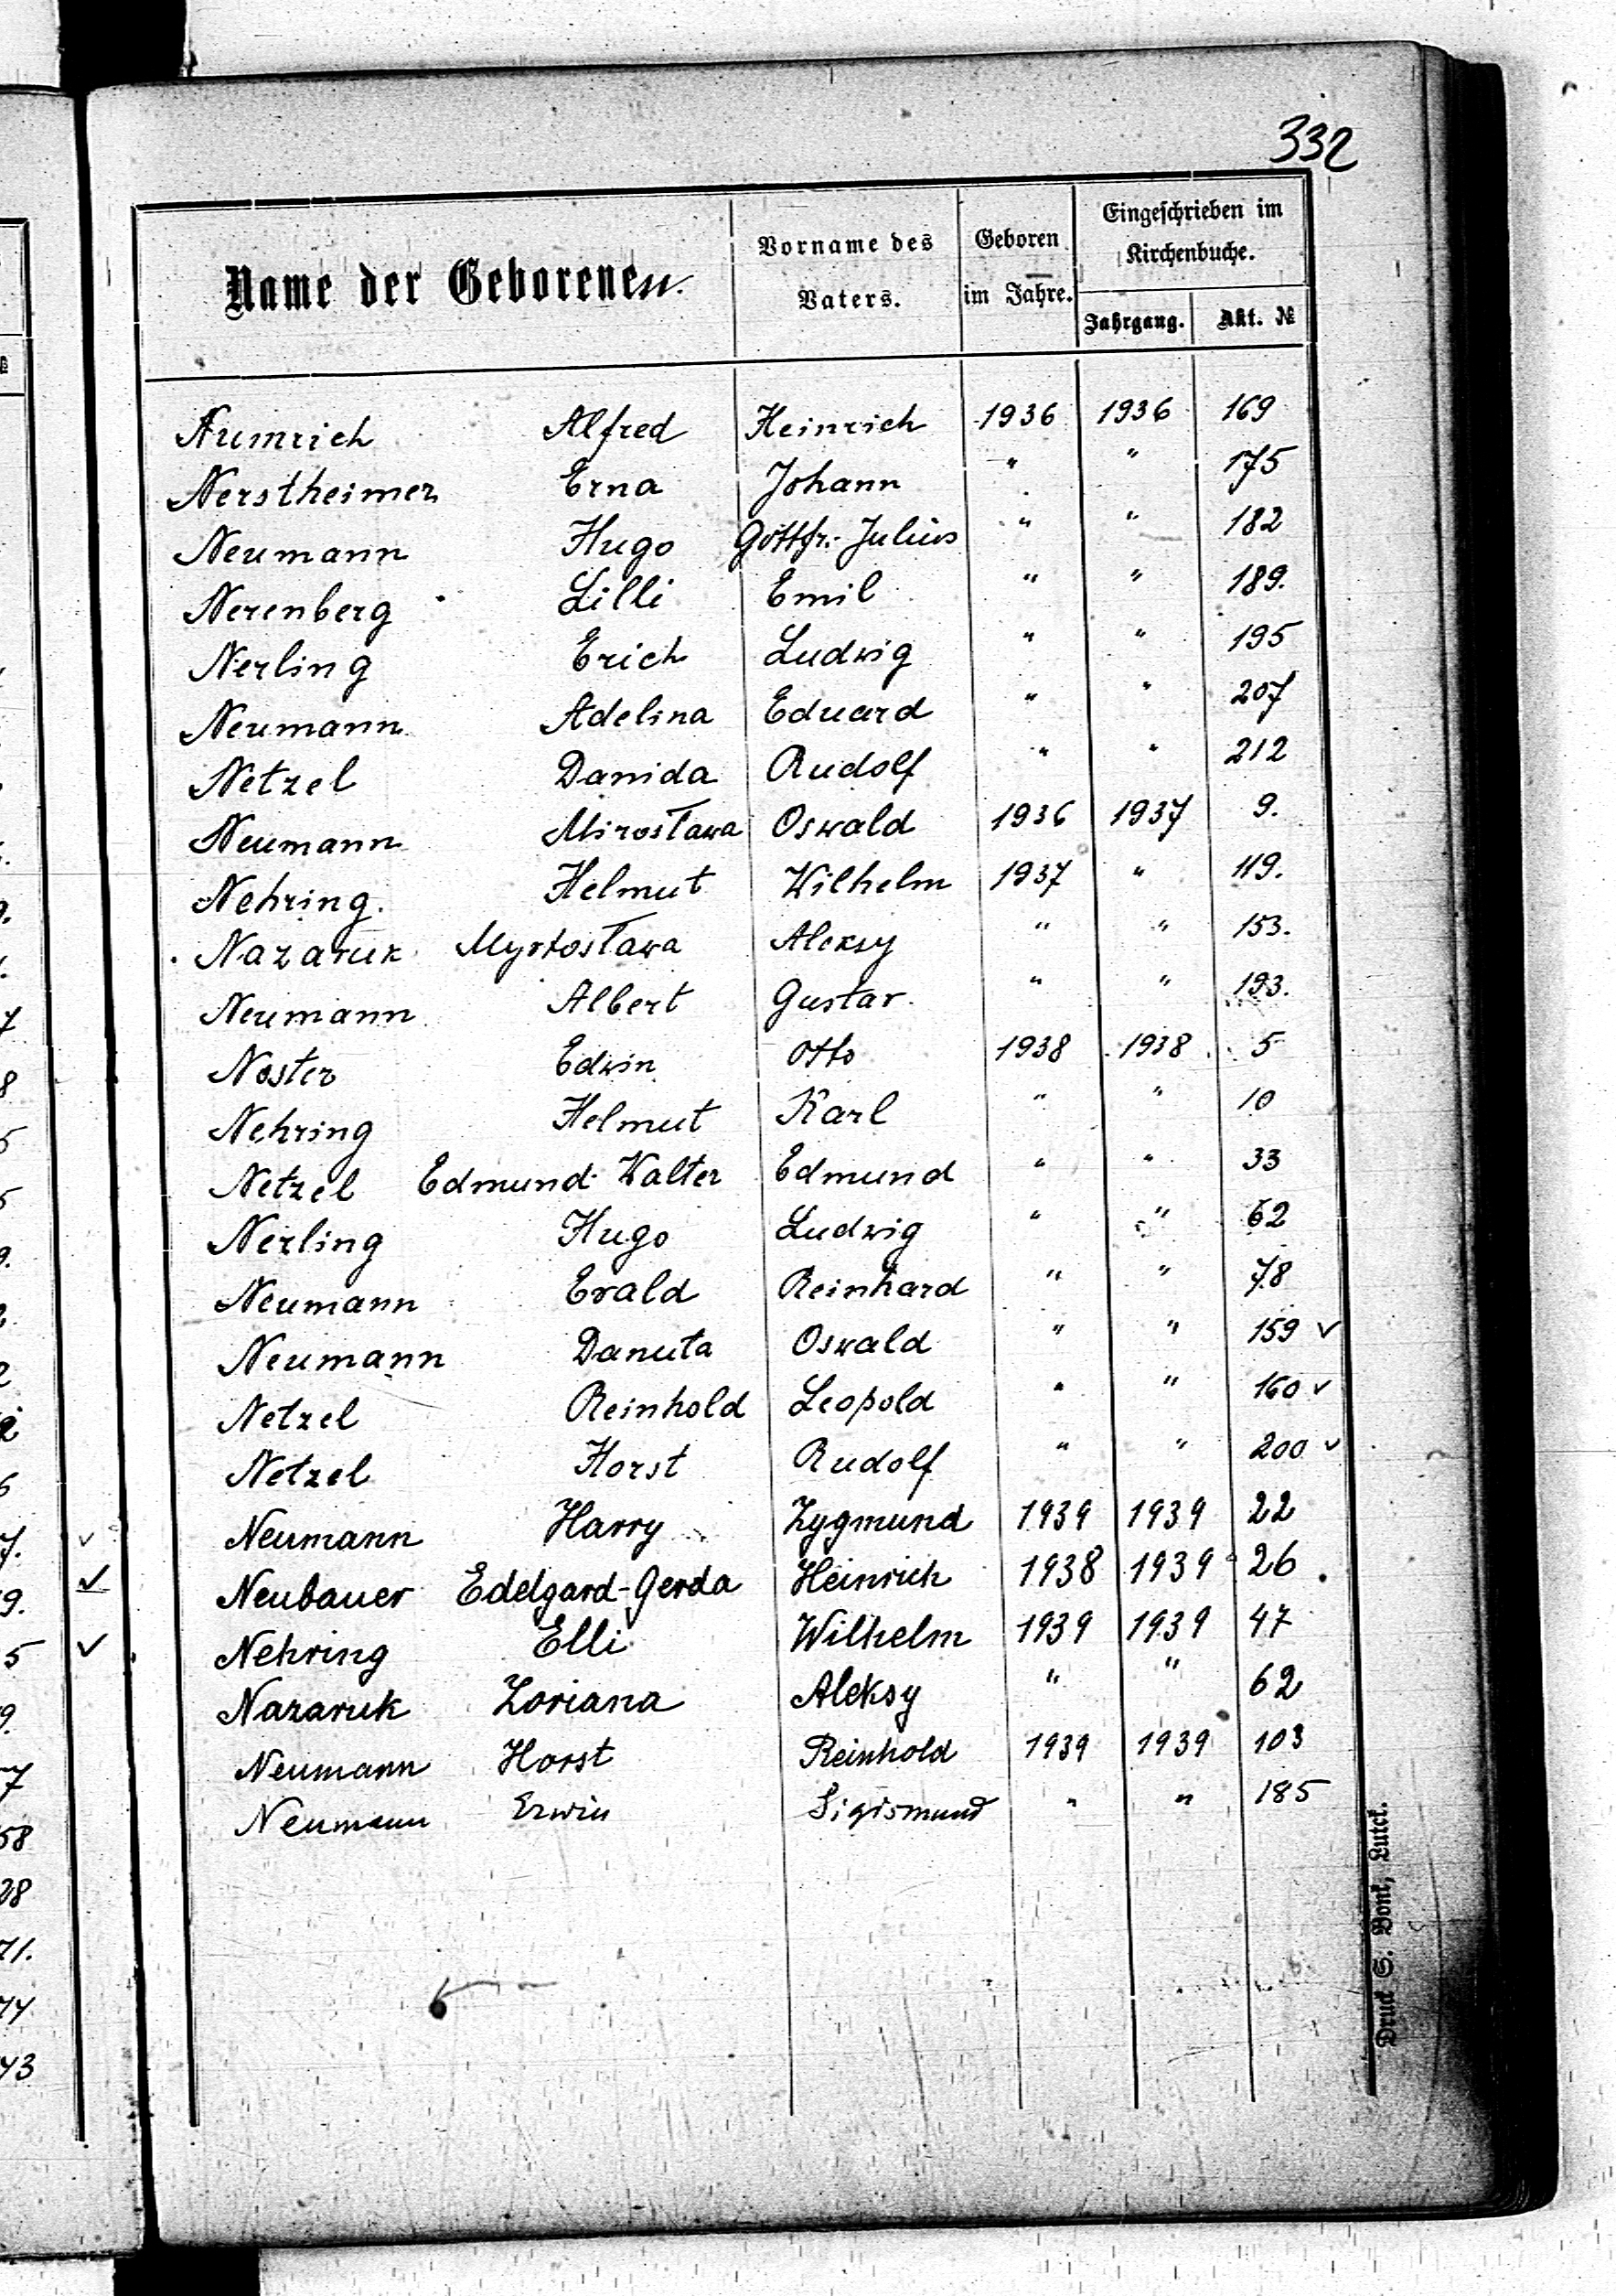 332
Name der Geborenen.
Vorname des Vaters.
Geboren im Jahre.
Eingeschrieben im Kirchenbuche.
Jahrgang. Akt. №
Numrich Alfred Heinrich 1936 1936 169
Nerstheimer Erna Johann " " 175
Neumann Hugo Gottfr. Julius " " 182
Nerenberg Lilli Emil " " 189.
Nerling Erich Ludwig " " 195
Neumann Adelina Eduard " " 207
Netzel Danida Rudolf " " 212
Neumann Mirosława Oswald 1936 1937 9.
Nehring. Helmut Wilhelm 1937 " 119.
Nazaruk Myrosława Aleksy " " 153.
Neumann Albert Gustav. " " 193.
Noster Edwin Otto 1938 1938 5
Nehring Helmut Karl " " 10
Netzel Edmund Walter Edmund " " 33
Nerling Hugo Ludwig " " 62
Neumann Evald Reinhard " " 78
Neumann Danuta Oswald " " 159 ✓
Netzel Reinhold Leopold " " 160 ✓
Netzel Horst Rudolf " " 200 ✓
Neumann Harry Zygmund 1939 1939 22
Neubauer Edelgard-Gerda Heinrich 1938 1939 26
Nehring Elli Wilhelm 1939 1939 47
Nazaruk Zoriana Aleksy " " 62
Neumann Horst Reinhold 1939 1939 103
Neumann Erwin Sigismund " " 185
Druck S. Bont, Lutck.